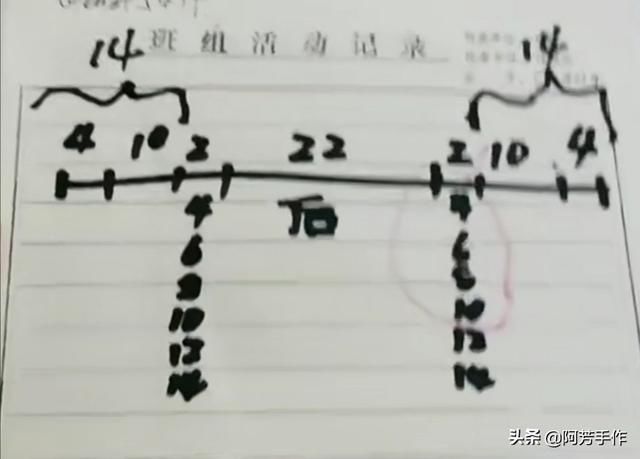 班组活动记录
14 14
4 10 2 22 2 10 4
4 后 4
6 6
8 8
10 10
12 12
14 14
头条 @阿芳手作